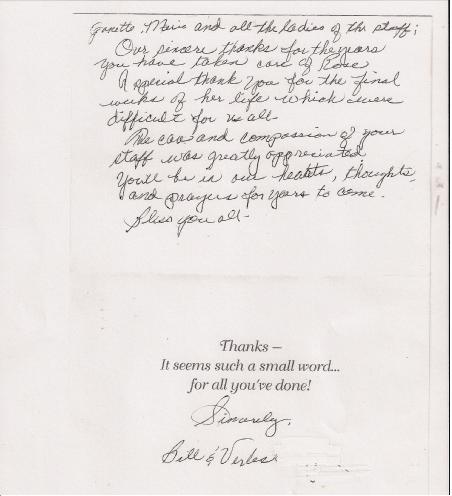 and all the ladies of the staff;
Our sincere thanks for the years
you have taken care of Rose
A special thank you for the final
weeks of her life which were
difficult for us all-
The care and compassion of your
staff was greatly appreciated
You'll be in our hearts, thoughts,
and prayers for years to come.
Bless you all-
Thanks —
It seems such a small word...
for all you've done!
Sincerely,
Bill &